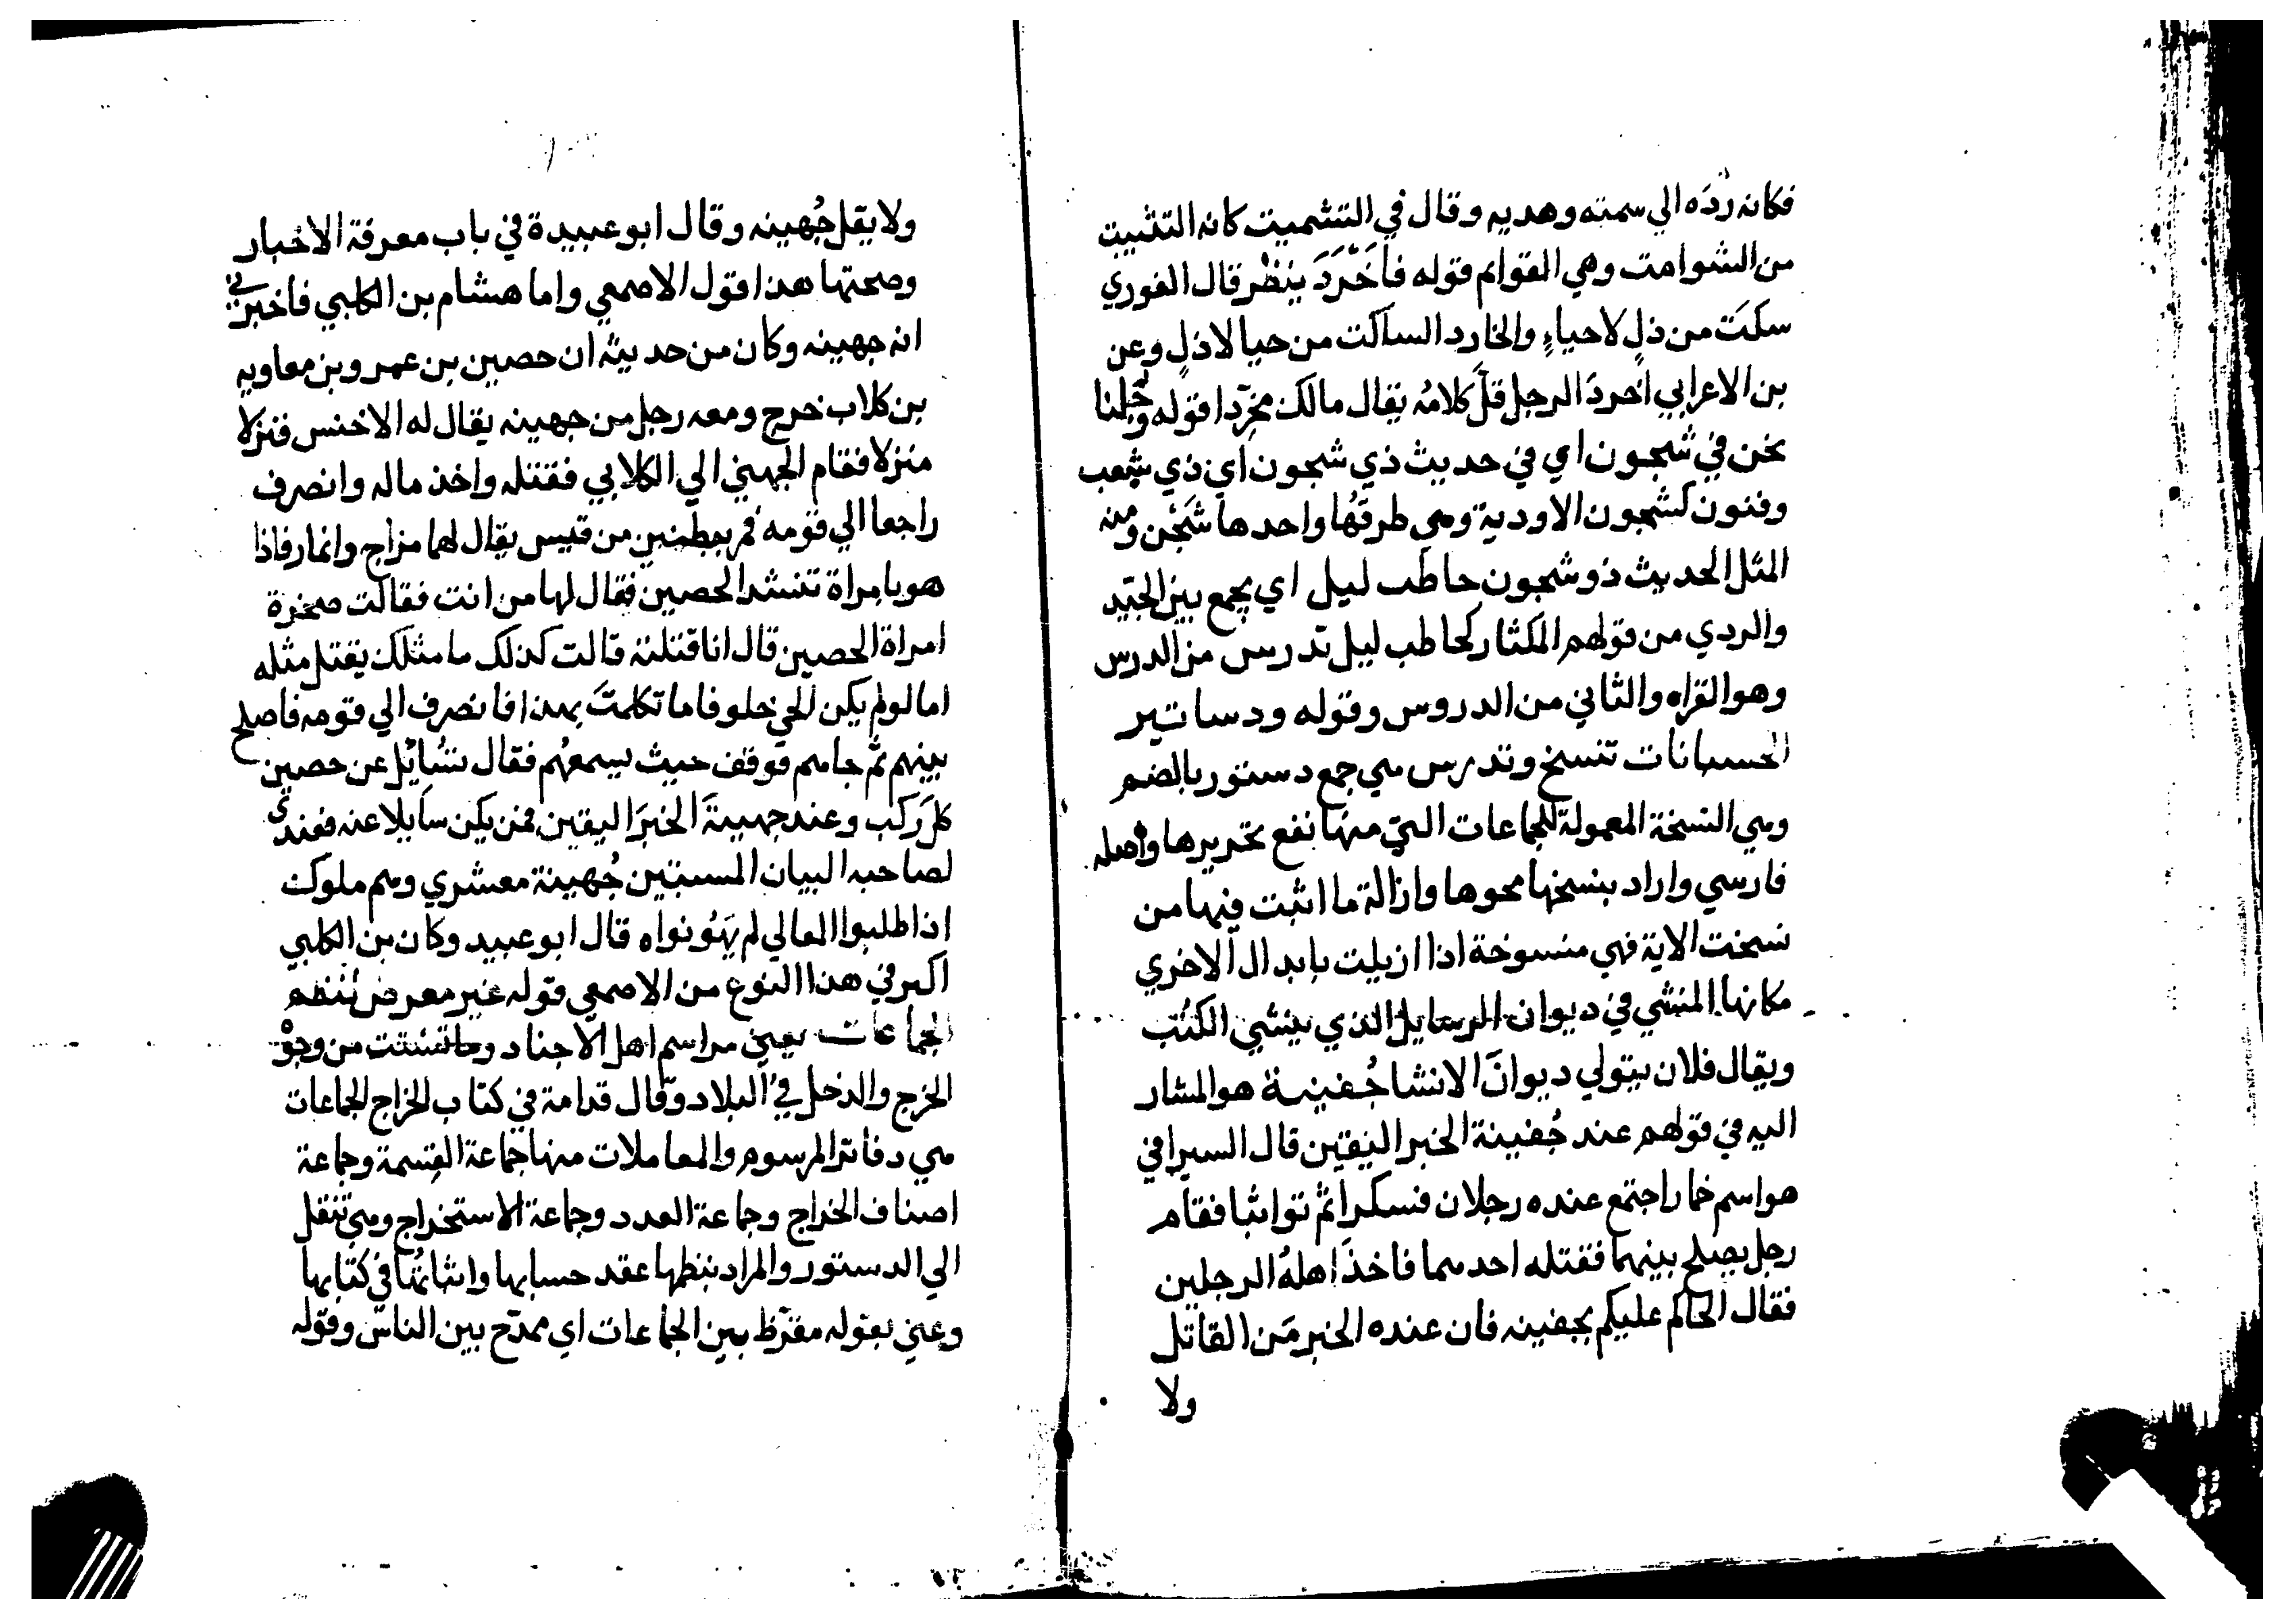 فكانه رده الي سمته وهديه وقال في التشميت كانه التثبيت
من الشوامت وهي القوائم قوله فأَخْرَدَ ينظر قال الغوري
سكتَ من ذلٍ لا حياءٍ والخارد الساكت من حيا لا ذلٍ وعن
بن الاعرابي اخردَ الرجل قلّ كلامُه يقال مالك مخرّدا قوله وجُلنا
نحن في شجون اي في حديث ذي شجون اي ذي شعب
وفنون كشجون الاودية وهي طرقها واحدها شَجْن ومنه
المثل الحديث ذو شجون حاطب ليل اي يجمع بين الجيّد
والردي من قولهم المكثار كحاطب ليل تدرس من الدرس
وهو القراه والثاني من الدروس وقوله ودساتير
الحسبانات تنسخ وتدرس هي جمع دستور بالضم
وهي النسخة المعمولة للجماعات التي منها نفع تحريرها واصله
فارسي واراد بنسخها محوها وازالة ما اثبت فيها من
نسخت الاية فهي منسوخة اذا ازيلت بابدال الاخري
مكانها المنشي في ديوان الرسايل الذي ينشي الكتُب
ويقال فلان يتولي ديوانَ الانشا جُفينة هو المشار
اليه في قولهم عند جُفينة الخبر اليقين قال السيرافي
هو اسم خمار اجتمع عنده رجلان فسكرا ثم تواثبا فقام
رجل يصلح بينهما فقتله احدهما فاخذ اهلهُ الرجلين
فقال الحاكم عليكم بجفينه فان عنده الخبر مَن القاتل
ولا
ولا يقل جُهينه وقال ابو عبيدة في باب معرفة الاخبار
وصحتها هذا قول الاصمعي واما هشام بن الكلبي فاخبرني
انه جهينه وكان من حديثه ان حصين بن عمرو بن معاويه
بن كلاب خرج ومعه رجل من جهينه يقال له الاخنس فنزلا
منزلا فقام الجهني الي الكلابي فقتله واخذ ماله وانصرف
راجعا الي قومه فمر ببطنين من قيس يقال لهما مزاج وانمار فاذا
هو بامراة تنشد الحصين فقال لها من انت فقالت صخرة
امراة الحصين قال انا قتلته قالت كذلك ما مثلك يقتل مثله
اما لو لم يكن الحي خلوفا ما تكلمتَ بهذا فانصرف الي قومه فاصلح
بينهم ثم جاهم فوقف حيث يسمعهم فقال تُسَائِل عن حصين
كلَ رَكب وعند جهينةَ الخبرَ اليقين فمن يكن سايلا عنه فعندي
لصاحبه البيان المستبين جُهينة معشري وهم ملوك
اذا طلبوا المعالي لم يَهُونواه قال ابو عبيد وكان بن الكلبي
اكبر في هذا النوع من الاصمعي قوله غير معرض لنظم
الجماعات يعني مراسم اهل الاجناد وما تشتت من وجوه
الخرج والدخل في البلاد وقال قدامة في كتاب الخراج الجماعات
هي دفاتر المرسوم والمعاملات منها جماعة القسمة وجماعة
اصناف الخراج وجماعة العدد وجماعة الاستخراج وهي تنقل
الي الدستور والمراد بنظمها عقد حسابها واثباتها في كتابها
وعني بقوله مقرّظ بين الجماعات اي ممدّح بين الناس وقوله